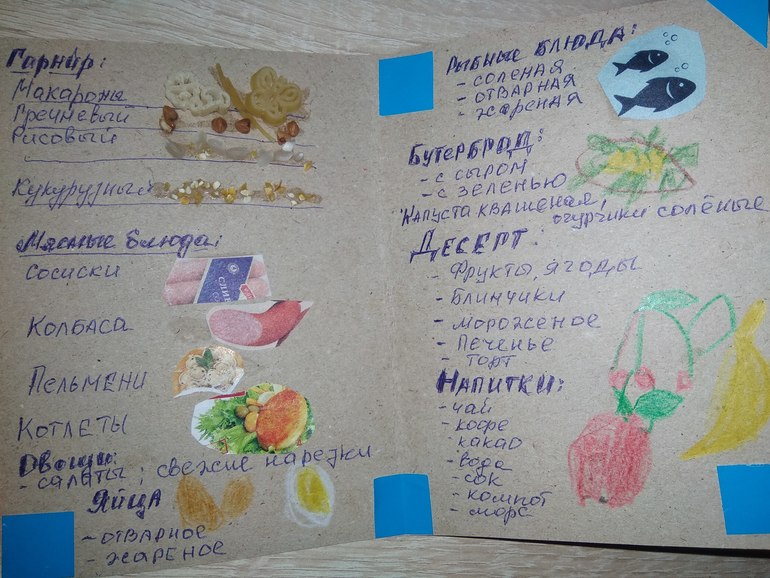 Гарнир:
Макароны
Гречневый
Рисовый
Кукурузный
Мясные блюда:
Сосиски
Колбаса
Пельмени
Котлеты
Овощи:
- салаты; свежие нарезки
Яйца
- отварное
- жареное
Рыбные блюда:
- соленая
- отварная
- жареная
Бутерброд:
- с сыром
- с зеленью
Капуста квашеная, огурчики солёные
Десерт:
- Фрукты, ягоды
- Блинчики
- мороженое
- печенье
- торт
Напитки:
- чай
- кофе
- какао
- вода
- сок
- компот
- морс